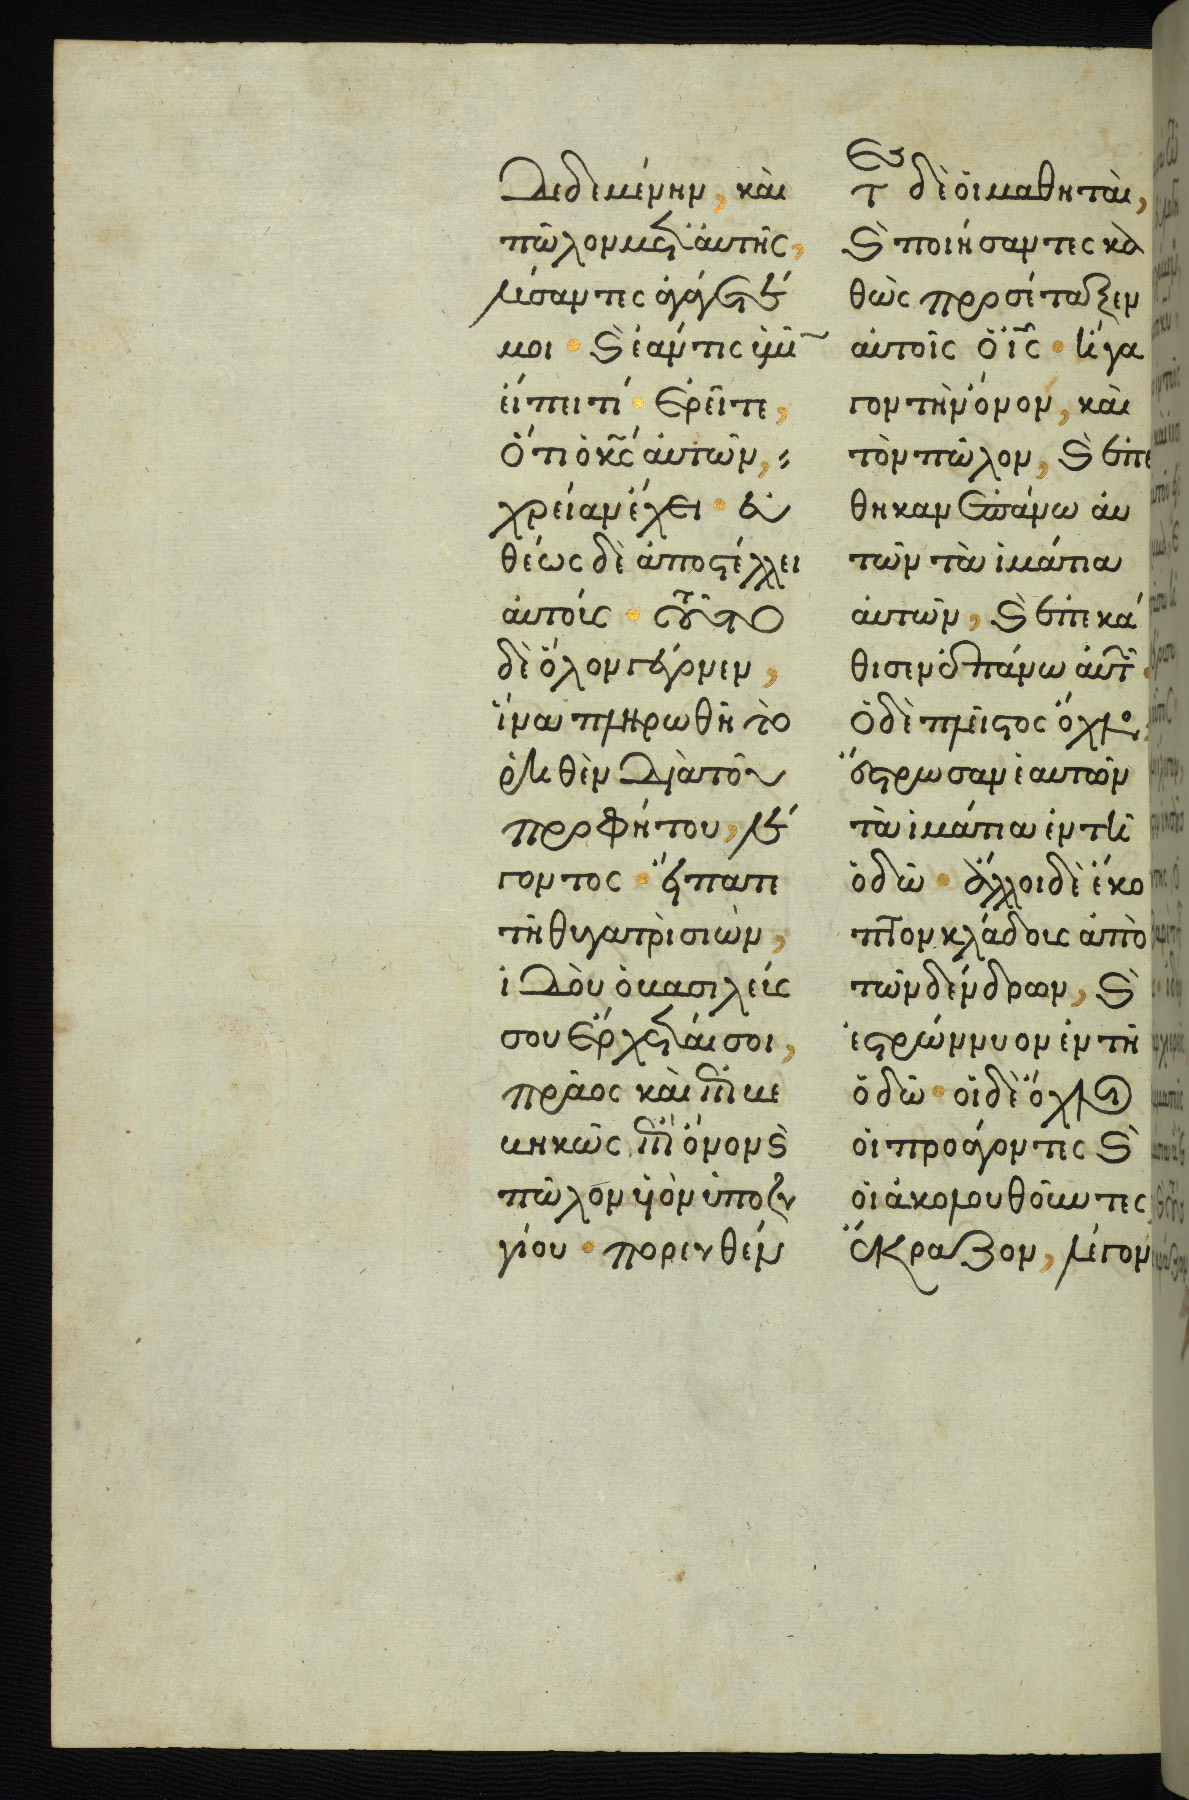 δεδεμένην, καὶ
πῶλον μετ' αὐτῆς,
λύσαντες ἀγάγετέ
μοι · καὶ ἐάν τις ὑμῖν
εἴπει τί · ἐρεῖτε,
ὅτι ὁ κς αὐτῶν,
χρείαν ἔχει · εὐ
θέως δὲ ἀποστέλλει
αὐτούς · τοῦτο
δὲ ὅλον γέγονεν,
ἵνα πληρωθῆ τὸ
ῥηθὲν διὰ τοῦ
προφήτου, λέ
γοντος · εἴπατε
τῆ θυγατρὶ σιών,
ἰδοὺ ὁ βασιλεύς
σου ἔρχεταί σοι,
πρᾶος καὶ ἐπιβε
βηκὼς ἐπὶ ὄνον καὶ
πῶλον υἱὸν ὑποζυ
γίου · πορευθέν
τες δὲ οἱ μαθηταὶ,
καὶ ποιήσαντες κα
θὼς προσέταξεν
αὐτοῖς ὁ ις · ἤγα
γον τὴν ὄνον, καὶ
τὸν πῶλον, καὶ ἐπέ
θηκαν ἐπάνω αὐ
τῶν τὰ ἱμάτια
αὐτῶν, καὶ ἐπεκά
θισεν ἐπάνω αὐτῶν
ὁ δὲ πλεῖστος ὄχλος,
ἔστρωσαν ἑαυτῶν
τὰ ἱμάτια ἐν τῆ
ὁδῶ · ἄλλοι δὲ ἔκο
πτον κλάδους ἀπὸ
τῶν δένδρων, καὶ
ἐστρώννυον ἐν τῆ
ὁδῶ · οἱ δὲ ὄχλοι
οἱ προάγοντες καὶ
οἱ ἀκολουθοῦντες
ἔκραζον, λέγον